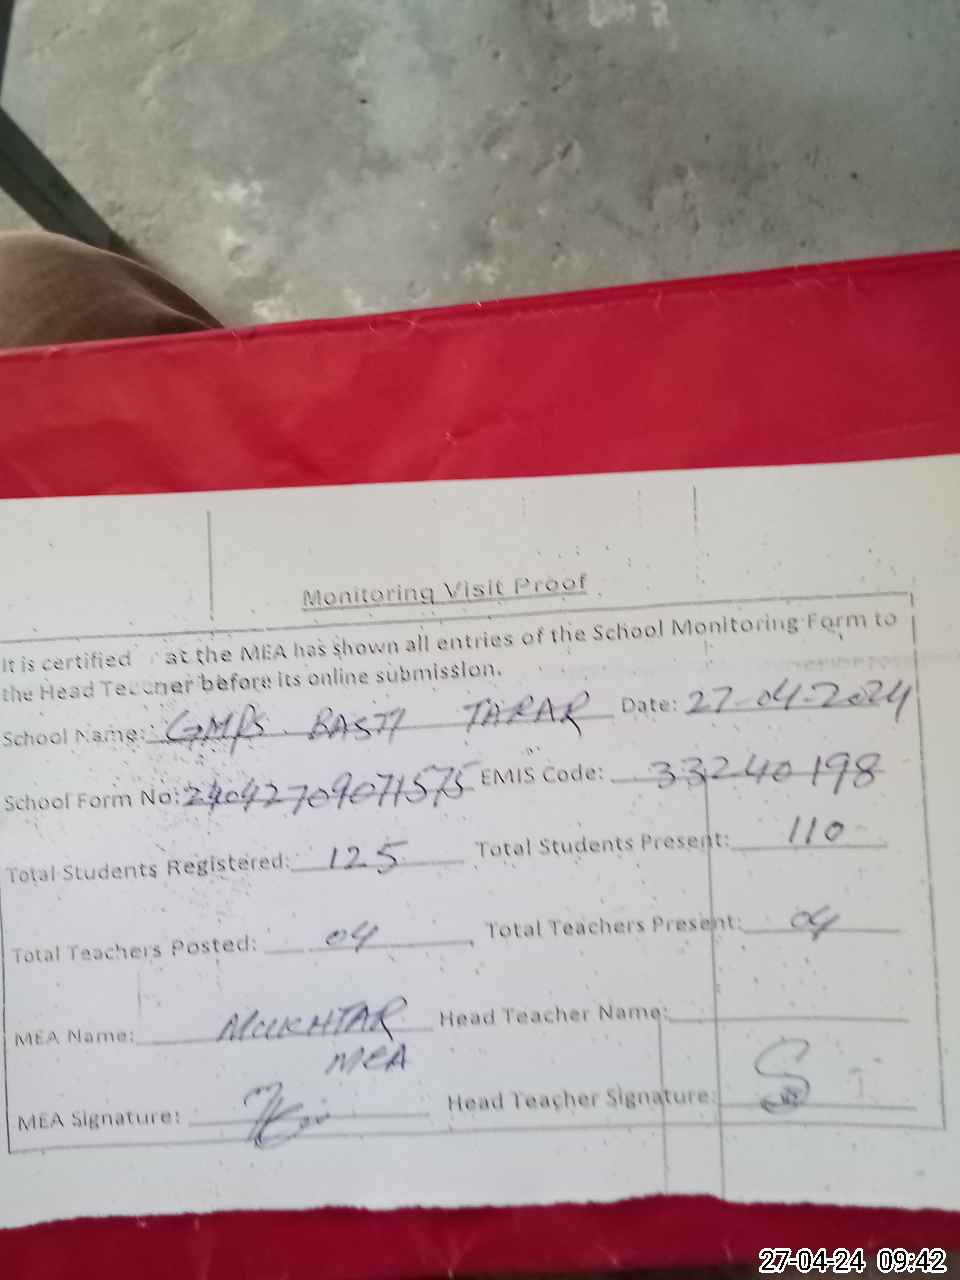 Monitoring Visit Proof
It is certified at the MEA has shown all entries of the School Monitoring Form to
the Head Teacher before its online submission.
School Name: GMPS BASTI TARAR Date: 27-04-2024
School Form No: 24042709071575 EMIS Code: 33240198
Total Students Registered: 125 Total Students Present: 110
Total Teachers Posted: 04 Total Teachers Present: 04
MEA Name: MUKHTAR Head Teacher Name:
MEA
MEA Signature: Head Teacher Signature:
27-04-24 09:42